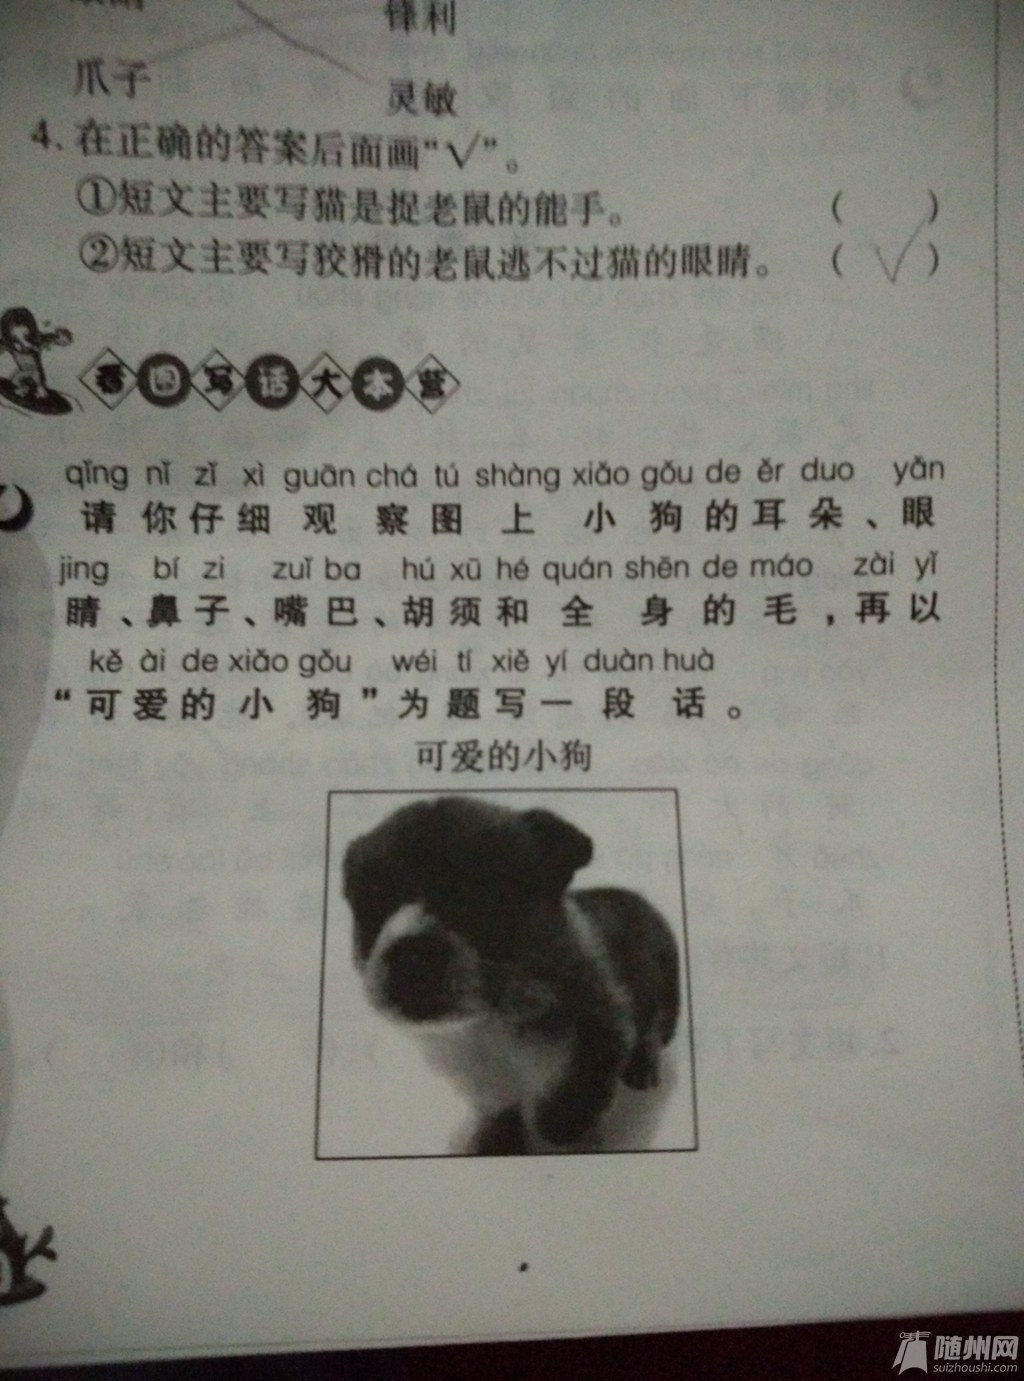 锋利
爪子
灵敏
4、在正确的答案后面画“√”。
①短文主要写猫是捉老鼠的能手。 ( )
②短文主要写狡猾的老鼠逃不过猫的眼睛。 (√)
看图写话大本营
qǐng nǐ zǐ xì guān chá tú shàng xiǎo gǒu de ěr duo yǎn
请你仔细观察图上小狗的耳朵、眼
jing bí zi zuǐ ba hú xū hé quán shēn de máo zài yǐ
睛、鼻子、嘴巴、胡须和全身的毛,再以
kě ài de xiǎo gǒu wéi tí xiě yí duàn huà
“可爱的小狗”为题写一段话。
可爱的小狗
随州网
suizhoushi.com